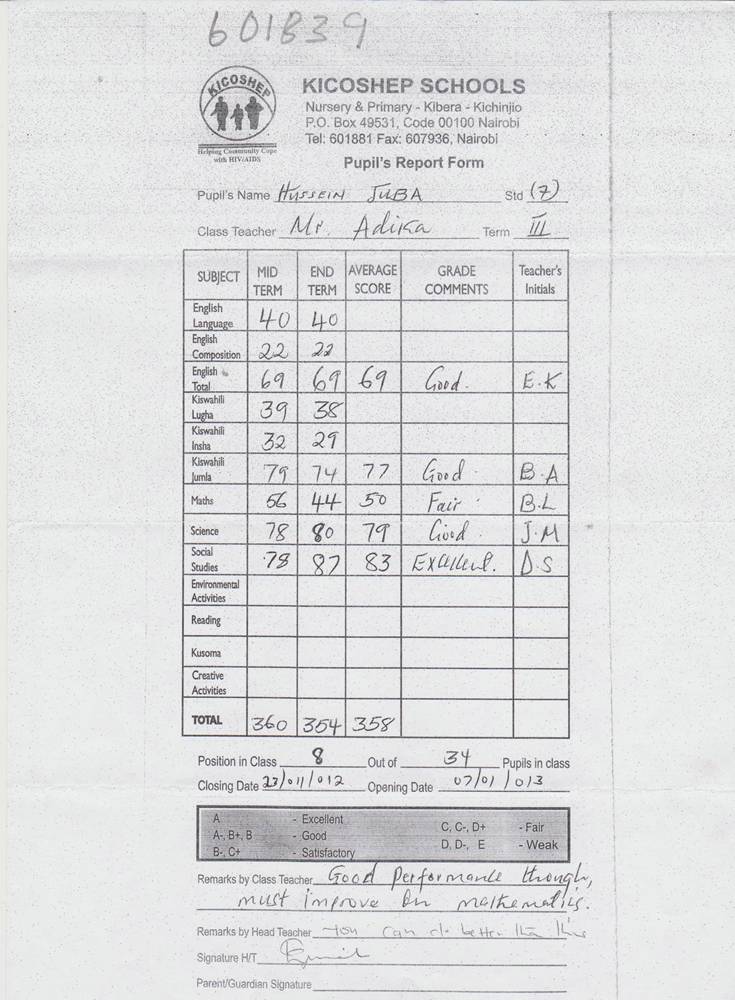 601839
KICOSHEP
Helping Community Cope
with HIV/AIDS
KICOSHEP SCHOOLS
Nursery & Primary - Kibera - Kichinjio
P.O. Box 49531, Code 00100 Nairobi
Tel: 601881 Fax: 607936, Nairobi
Pupil's Report Form
Pupil's Name HUSSEIN JUBA Std (7)
Class Teacher Mr. Adika Term III
SUBJECT MID TERM END TERM AVERAGE SCORE GRADE COMMENTS Teacher's Initials
English Language 40 40
English Composition 22 22
English Total 69 69 69 Good. E.K
Kiswahili Lugha 39 38
Kiswahili Insha 32 29
Kiswahili Jumla 79 74 77 Good. B.A
Maths 56 44 50 Fair. B.L
Science 78 80 79 Good. J.M
Social Studies 78 87 83 Excellent. D.S
Environmental Activities
Reading
Kusoma
Creative Activities
TOTAL 360 354 358
Position in Class 8 Out of 34 Pupils in class
Closing Date 23/011/012 Opening Date 07/01/013
A - Excellent
A-, B+, B - Good
B-, C+ - Satisfactory
C, C-, D+ - Fair
D, D-, E - Weak
Remarks by Class Teacher Good performance though,
must improve on mathematics.
Remarks by Head Teacher You can do better than this
Signature H/T
Parent/Guardian Signature